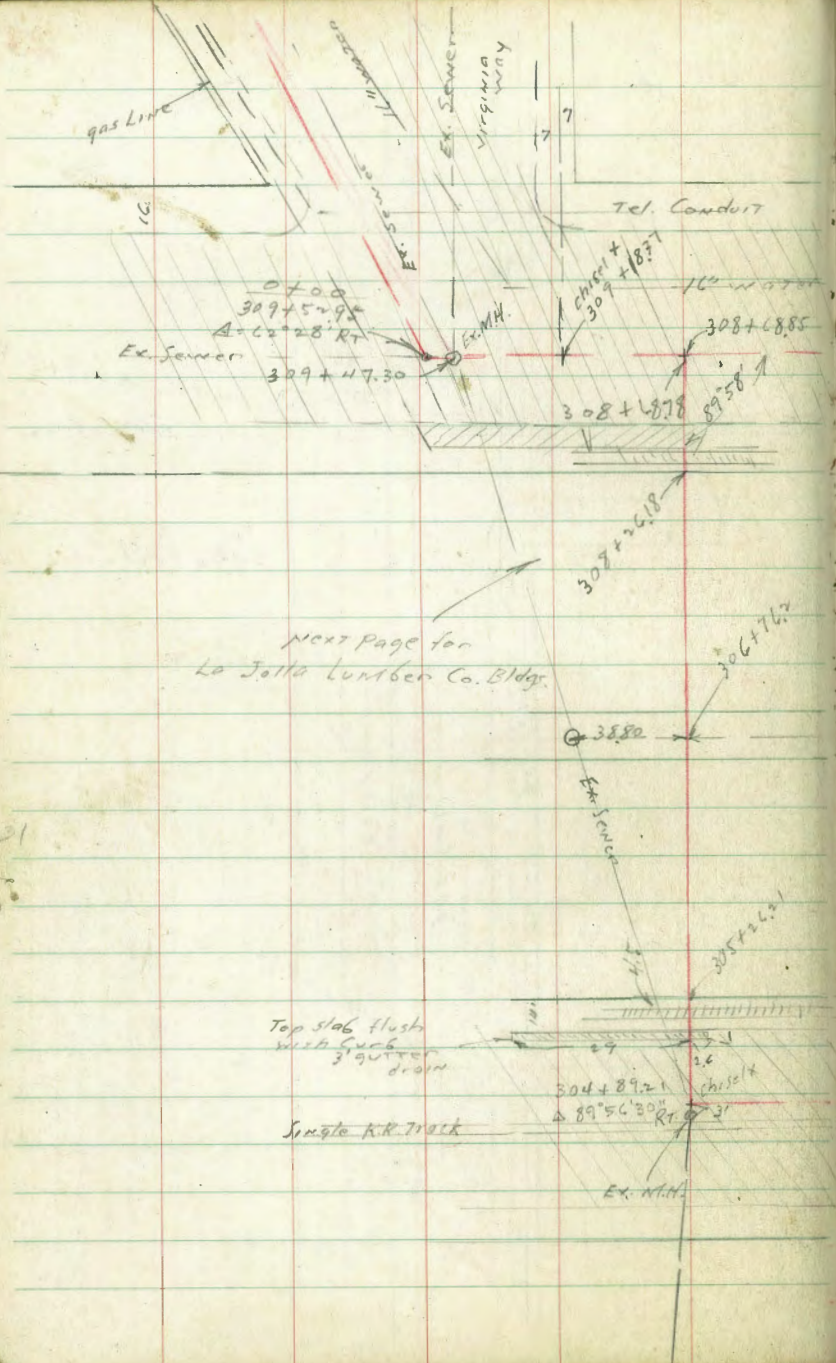 gas Line
16" water
Ex. Sewer
Ex. Sewer
Virginia
Way
7
7
16
Tel. Conduit
16" water
chisel x
309 + 18.37
0 + 00
309 + 52.95
Δ = 62°28' RT
Ex. Sewer
Ex. M.H.
309 + 47.30
308 + 68.85
308 + 68.78
89°58'
308 + 26.18
Next Page for
La Jolla Lumber Co. Bldgs.
306 + 76.2
38.80
Ex. Sewer
31
305 + 26.21
4.5
Top slab flush
with Curb
3' gutter
drain
29
2.6
chisel x
304 + 89.21
Δ 89°56'30" RT.
3'
Single R.R. Track
Ex. M.H.